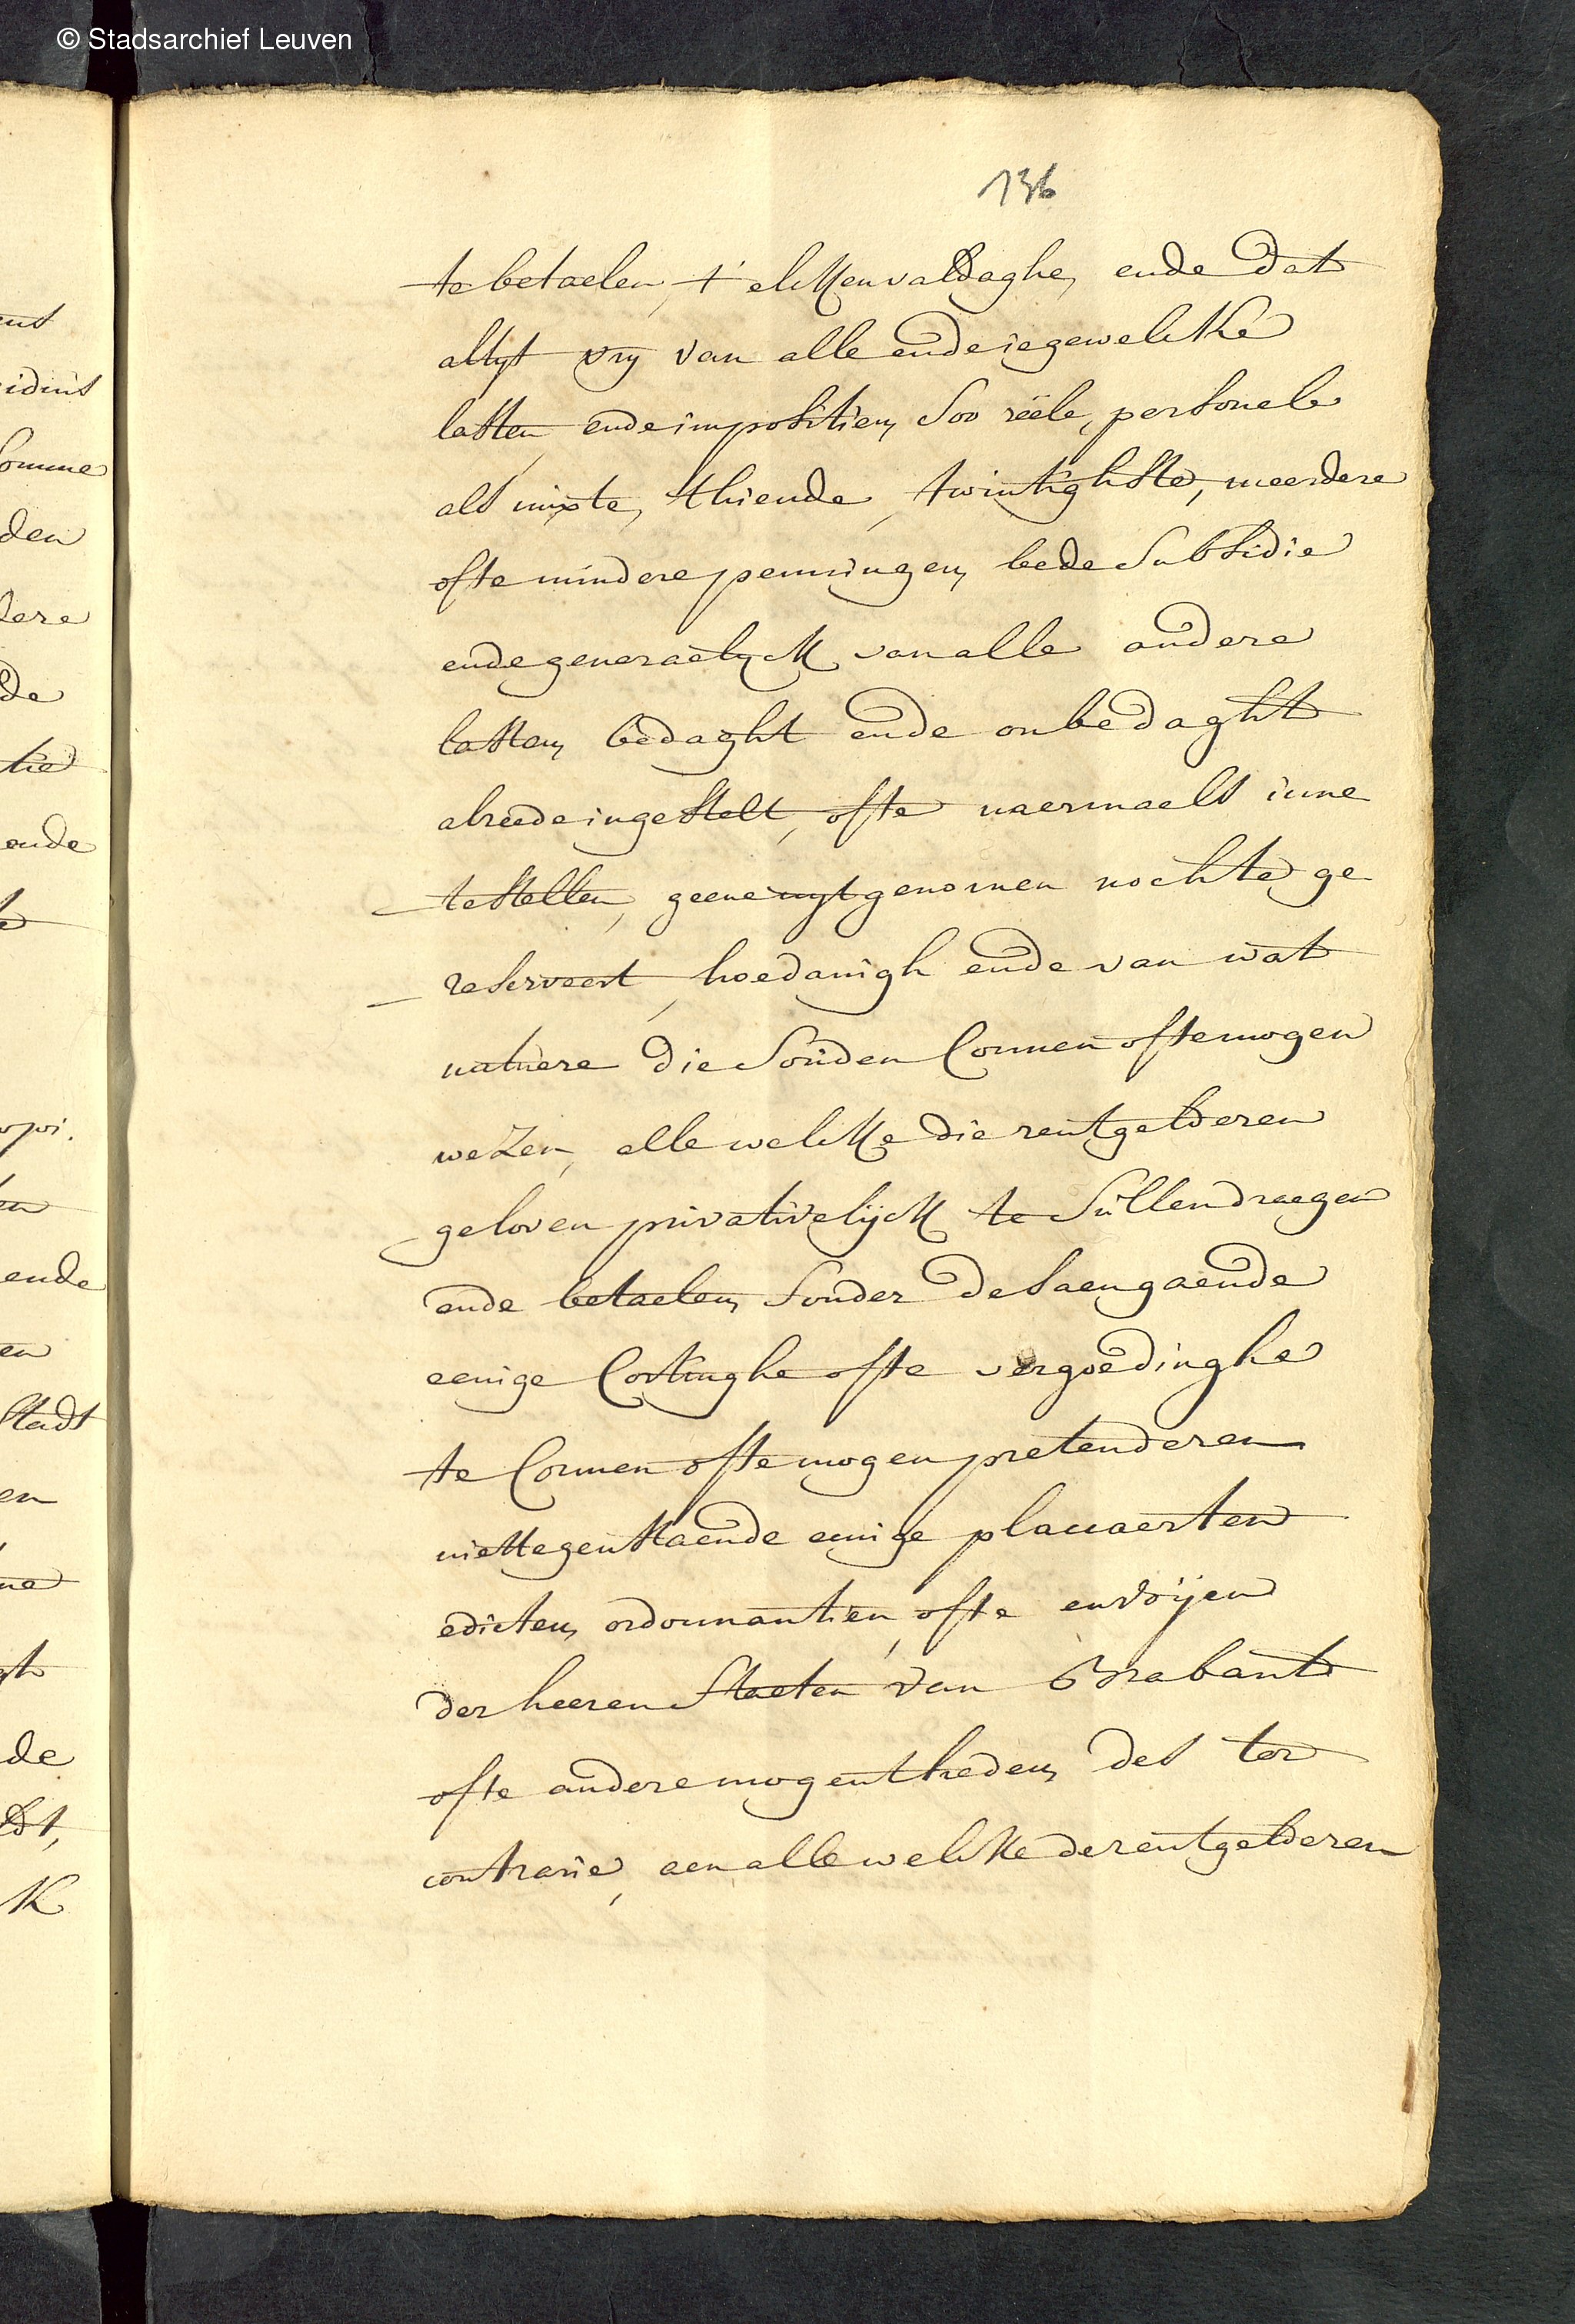 © Stadsarchief Leuven
136
te betaelen, t'elcken valdaghe, ende dat
altyt vry van alle ende iegewelcke
lasten, ende impositien, soo reële, personele
als mixte, thiende, twintighste, meerdere
ofte mindere penningen, bede subsidie
ende generaelyck van alle andere
lasten, bedaght ende onbedaght
alreede ingestelt, ofte naermaels inne
te stellen, geene uytgenomen nochte ge
reserveert, hoedanigh ende van wat
natuere die souden connen ofte mogen
wezen, alle welcke die rentgelderen
geloven privativelijck te sullen draegen
ende betaelen, sonder desaengaende
eenige cortinghe ofte vergoedinghe
te connen ofte mogen pretenderen
niettegenstaende eenige placcaerten
edicten, ordonnantien, ofte envoijen
der heeren Staeten van Brabant
ofte andere mogentheden, des ter
contrarie, aen alle welcke de rentgelderen